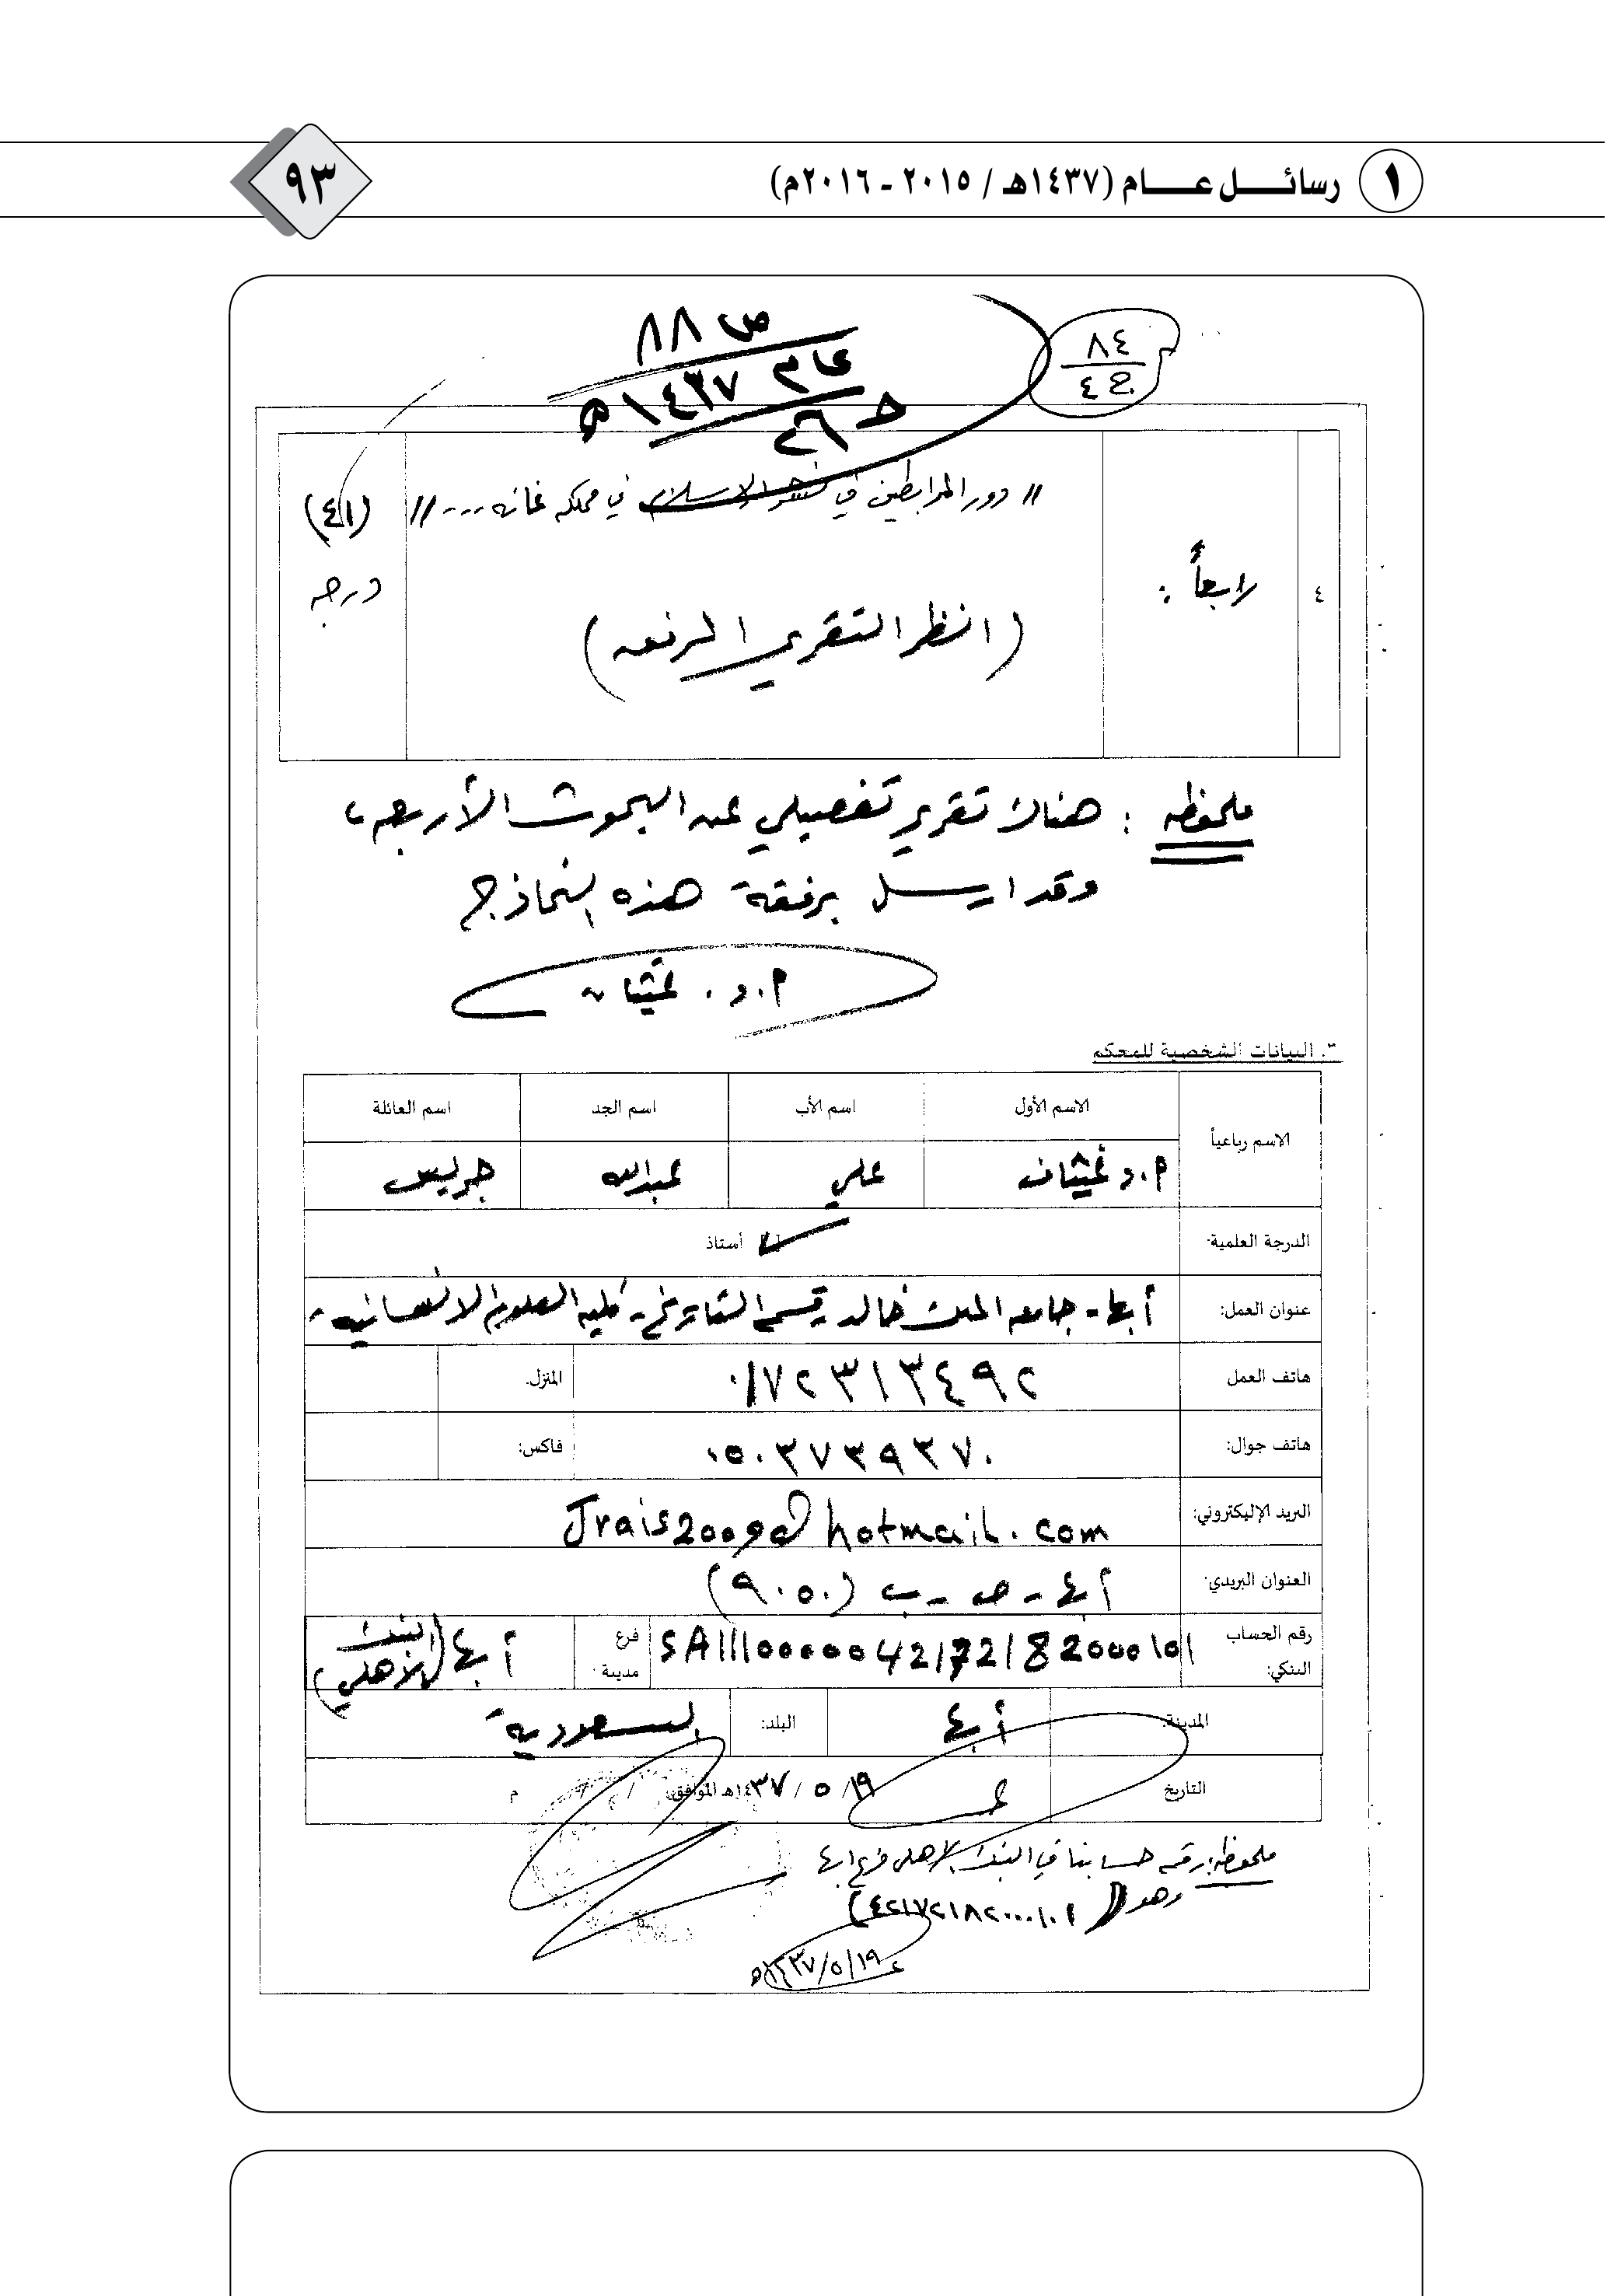 ١ رسائــــل عــــــام (١٤٣٧هـ / ٢٠١٥ ـ ٢٠١٦م)
٩٣
ص ٨٨
عام ١٤٣٧ هـ
ح ٢٦
٨٤
ج ٤
٤
رابعاً :
" دور المرابطين في نشر الإسلام في مملكه غانه ... "
(٤١)
درجه
(انظر التقرير المرفق)
ملحوظه : هناك تقرير تفصيلي عن البحوث الأربعه،
وقد ارسل برفقة هذه النماذج
أ.د. غيثان
٣. البيانات الشخصية للمحكم
الاسم رباعياً
الاسم الأول
اسم الأب
اسم الجد
اسم العائلة
أ.د غيثان
علي
عبدالله
جريس
الدرجة العلمية:
أستاذ
عنوان العمل:
أبها - جامعه الملك خالد - قسم التاريخ - كليه العلوم الانسانيه -
هاتف العمل
٠١٧٢٣١٣٤٩٢
المنزل:
هاتف جوال:
٠٥٠٣٧٣٩٣٧٠
فاكس:
البريد الإليكتروني:
Jrais2009@hotmail.com
العنوان البريدي:
أبها - ص - ب (٩٠٥٠)
رقم الحساب
البنكي:
SA1110000042172182000101
فرع
مدينة
أبها (البنك
الأهلي)
المدينة:
أبها
البلد:
السعودية
التاريخ
١٩/ ٥ / ١٤٣٧هـ الموافق: / / م
ملحوظه: رقم حسابنا في البنك الأهلي فرع ابها
وهو (٤٢١٧٢١٨٢٠٠٠١٠١)
١٩/٥/١٤٣٧هـ